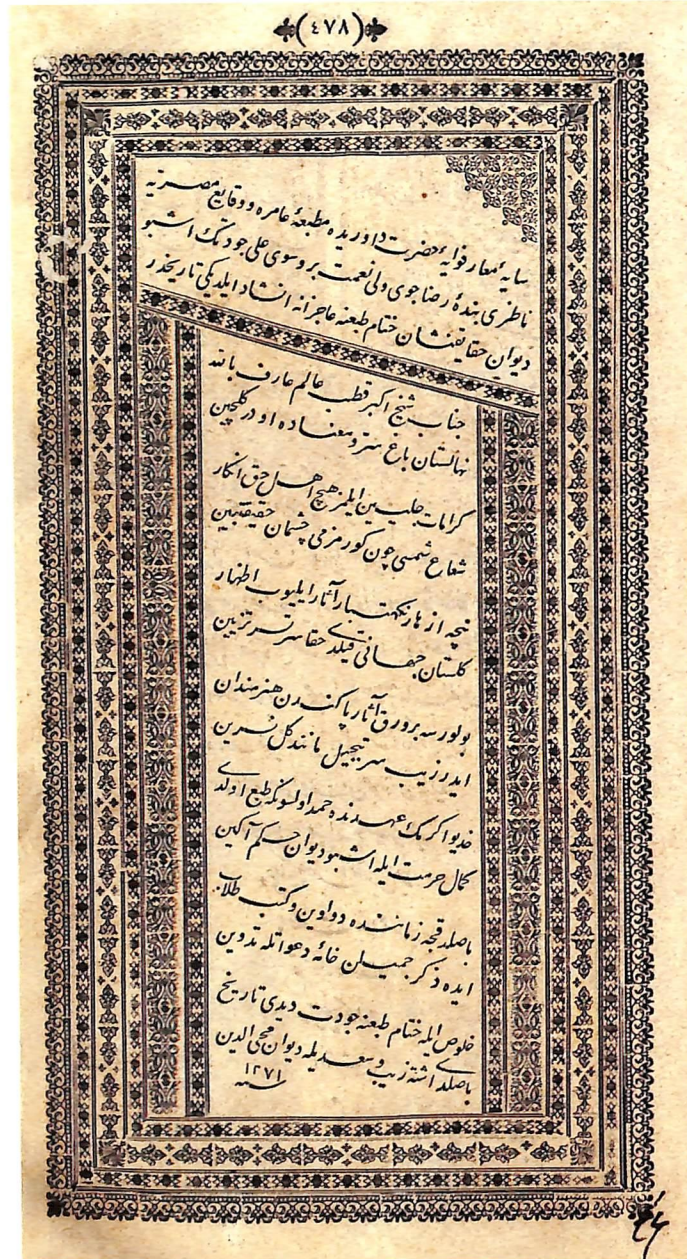 (٤٧٨)
سایهٔ معارفوایهٔ حضرت داوریده مطبعهٔ عامره و وقایع مصریه
ناظری بندهٔ رضاجوی ولی نعمت بروسوی علی جودتك اشبو
دیوان حقایقنشان ختام طبعنه عاجزانه انشاد ایلدیكی تاریخدر
جناب شیخ اكبر قطب عالم عارف بالله
نهالستان باغ سر و معناده اودر كلچین
كراماتِ جلیسین ایلمز هیچ اهل حق انكار
شعاع شمسی چون كورمزمی چشمان حقیقتبین
نیجه ازهار نكهتبار آثار ایلیوب اظهار
كلستان جهانی قیلدی حقا سر تسر تزیین
بولورسه بر ورق آثار پاكندن هنرمندان
ایدر زیب سر تبجیل مانند كل نسرین
خدیو اكرمك عهدنده حمد اولسونكه طبع اولدی
كمال حرمت ایله اشبو دیوان حكم آكین
باصلدقجه زمانندہ دواوین و كتب طلاب
ایده ذكر جمیلن خانهٔ دعواتله تدوین
خلوص ایله ختام طبعنه جودت دیدی تاریخ
باصلدی اشته زیب و سعدیله دیوان محیی الدین
سنه ١٢٧١